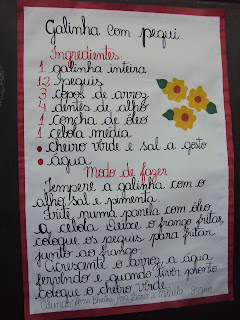 Galinha com pequi.
Ingredientes.
1 galinha inteira
12 pequis
3 copos de arroz
4 dentes de alho
1 concha de óleo
1 cebola média
• cheiro vrde e sal a gosto
• água
Modo de fazer
Tempere a galinha com o
alho, sal e pimenta.
Frite numa panela com óleo
a cebola. Deixe o frango fritar,
coloque os pequis para fritar
junto ao frango.
Acrescente o arroz, a água
fervendo e quando tiver pronto
coloque o cheiro verde.
Alunos: Anna